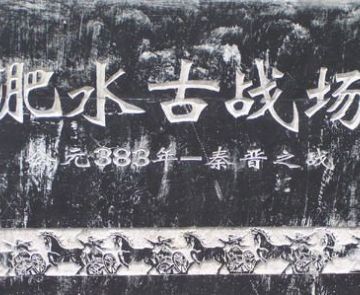 肥水古战场
公元383年—秦晋之战